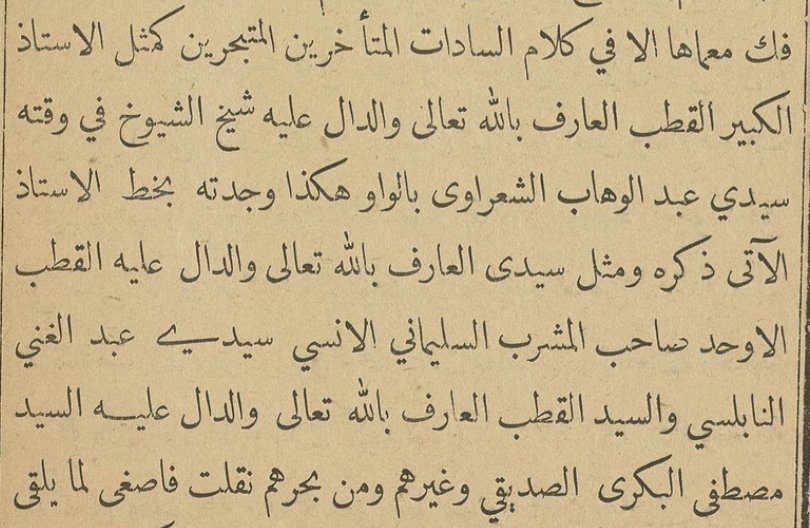 فك معماها الا في كلام السادات المتأخرين المتبحرين كمثل الاستاذ
الكبير القطب العارف بالله تعالى والدال عليه شيخ الشيوخ في وقته
سيدي عبد الوهاب الشعراوى بالواو هكذا وجدته بخط الاستاذ
الآتى ذكره ومثل سيدى العارف بالله تعالى والدال عليه القطب
الاوحد صاحب المشرب السليماني الانسي سيدي عبد الغني
النابلسي والسيد القطب العارف بالله تعالى والدال عليه السيد
مصطفى البكرى الصديقي وغيرهم ومن بحرهم نقلت فاصغى لما يلقى